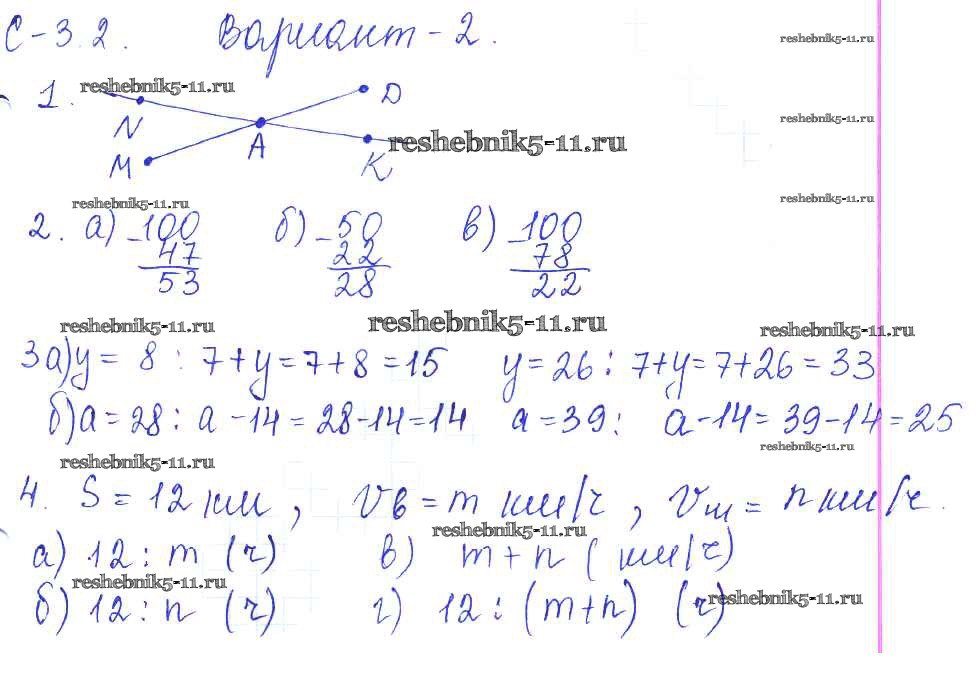 С-3.2. Вариант-2.
reshebnik5-11.ru
reshebnik5-11.ru
1.
D
N
A
M
K
reshebnik5-11.ru
reshebnik5-11.ru
reshebnik5-11.ru
reshebnik5-11.ru
2. а) -100 б) -50 в) -100
47 22 78
53 28 22
reshebnik5-11.ru
reshebnik5-11.ru
reshebnik5-11.ru
3а) y = 8 : 7+y=7+8=15 y=26: 7+y=7+26=33
б) a=28: a-14=28-14=14 a=39: a-14=39-14=25
reshebnik5-11.ru
reshebnik5-11.ru
4. S = 12 км, Vв = m км/ч, Vм = n км/ч.
reshebnik5-11.ru
а) 12 : m (ч) в) m+n (км/ч)
reshebnik5-11.ru
б) 12 : n (ч) г) 12 : (m+n) (ч)
reshebnik5-11.ru